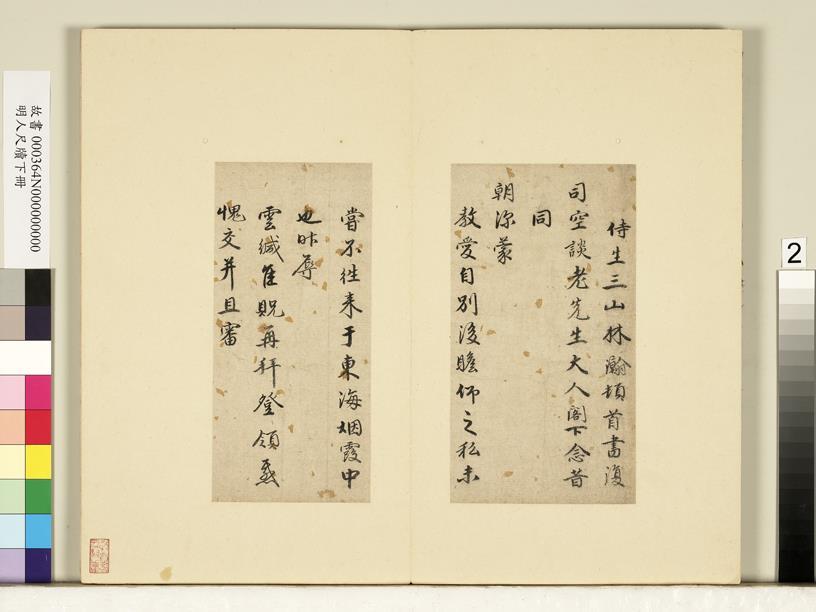 侍生三山林瀚頓首書復
司空談老先生大人閣下念昔
同
朝深蒙
教愛自別後瞻仰之私未
嘗不往来于東海烟霞中
也昨辱
雲緘隹貺再拜登領感
愧交并且審
故書 000364N000000000
明人尺牘下冊
2